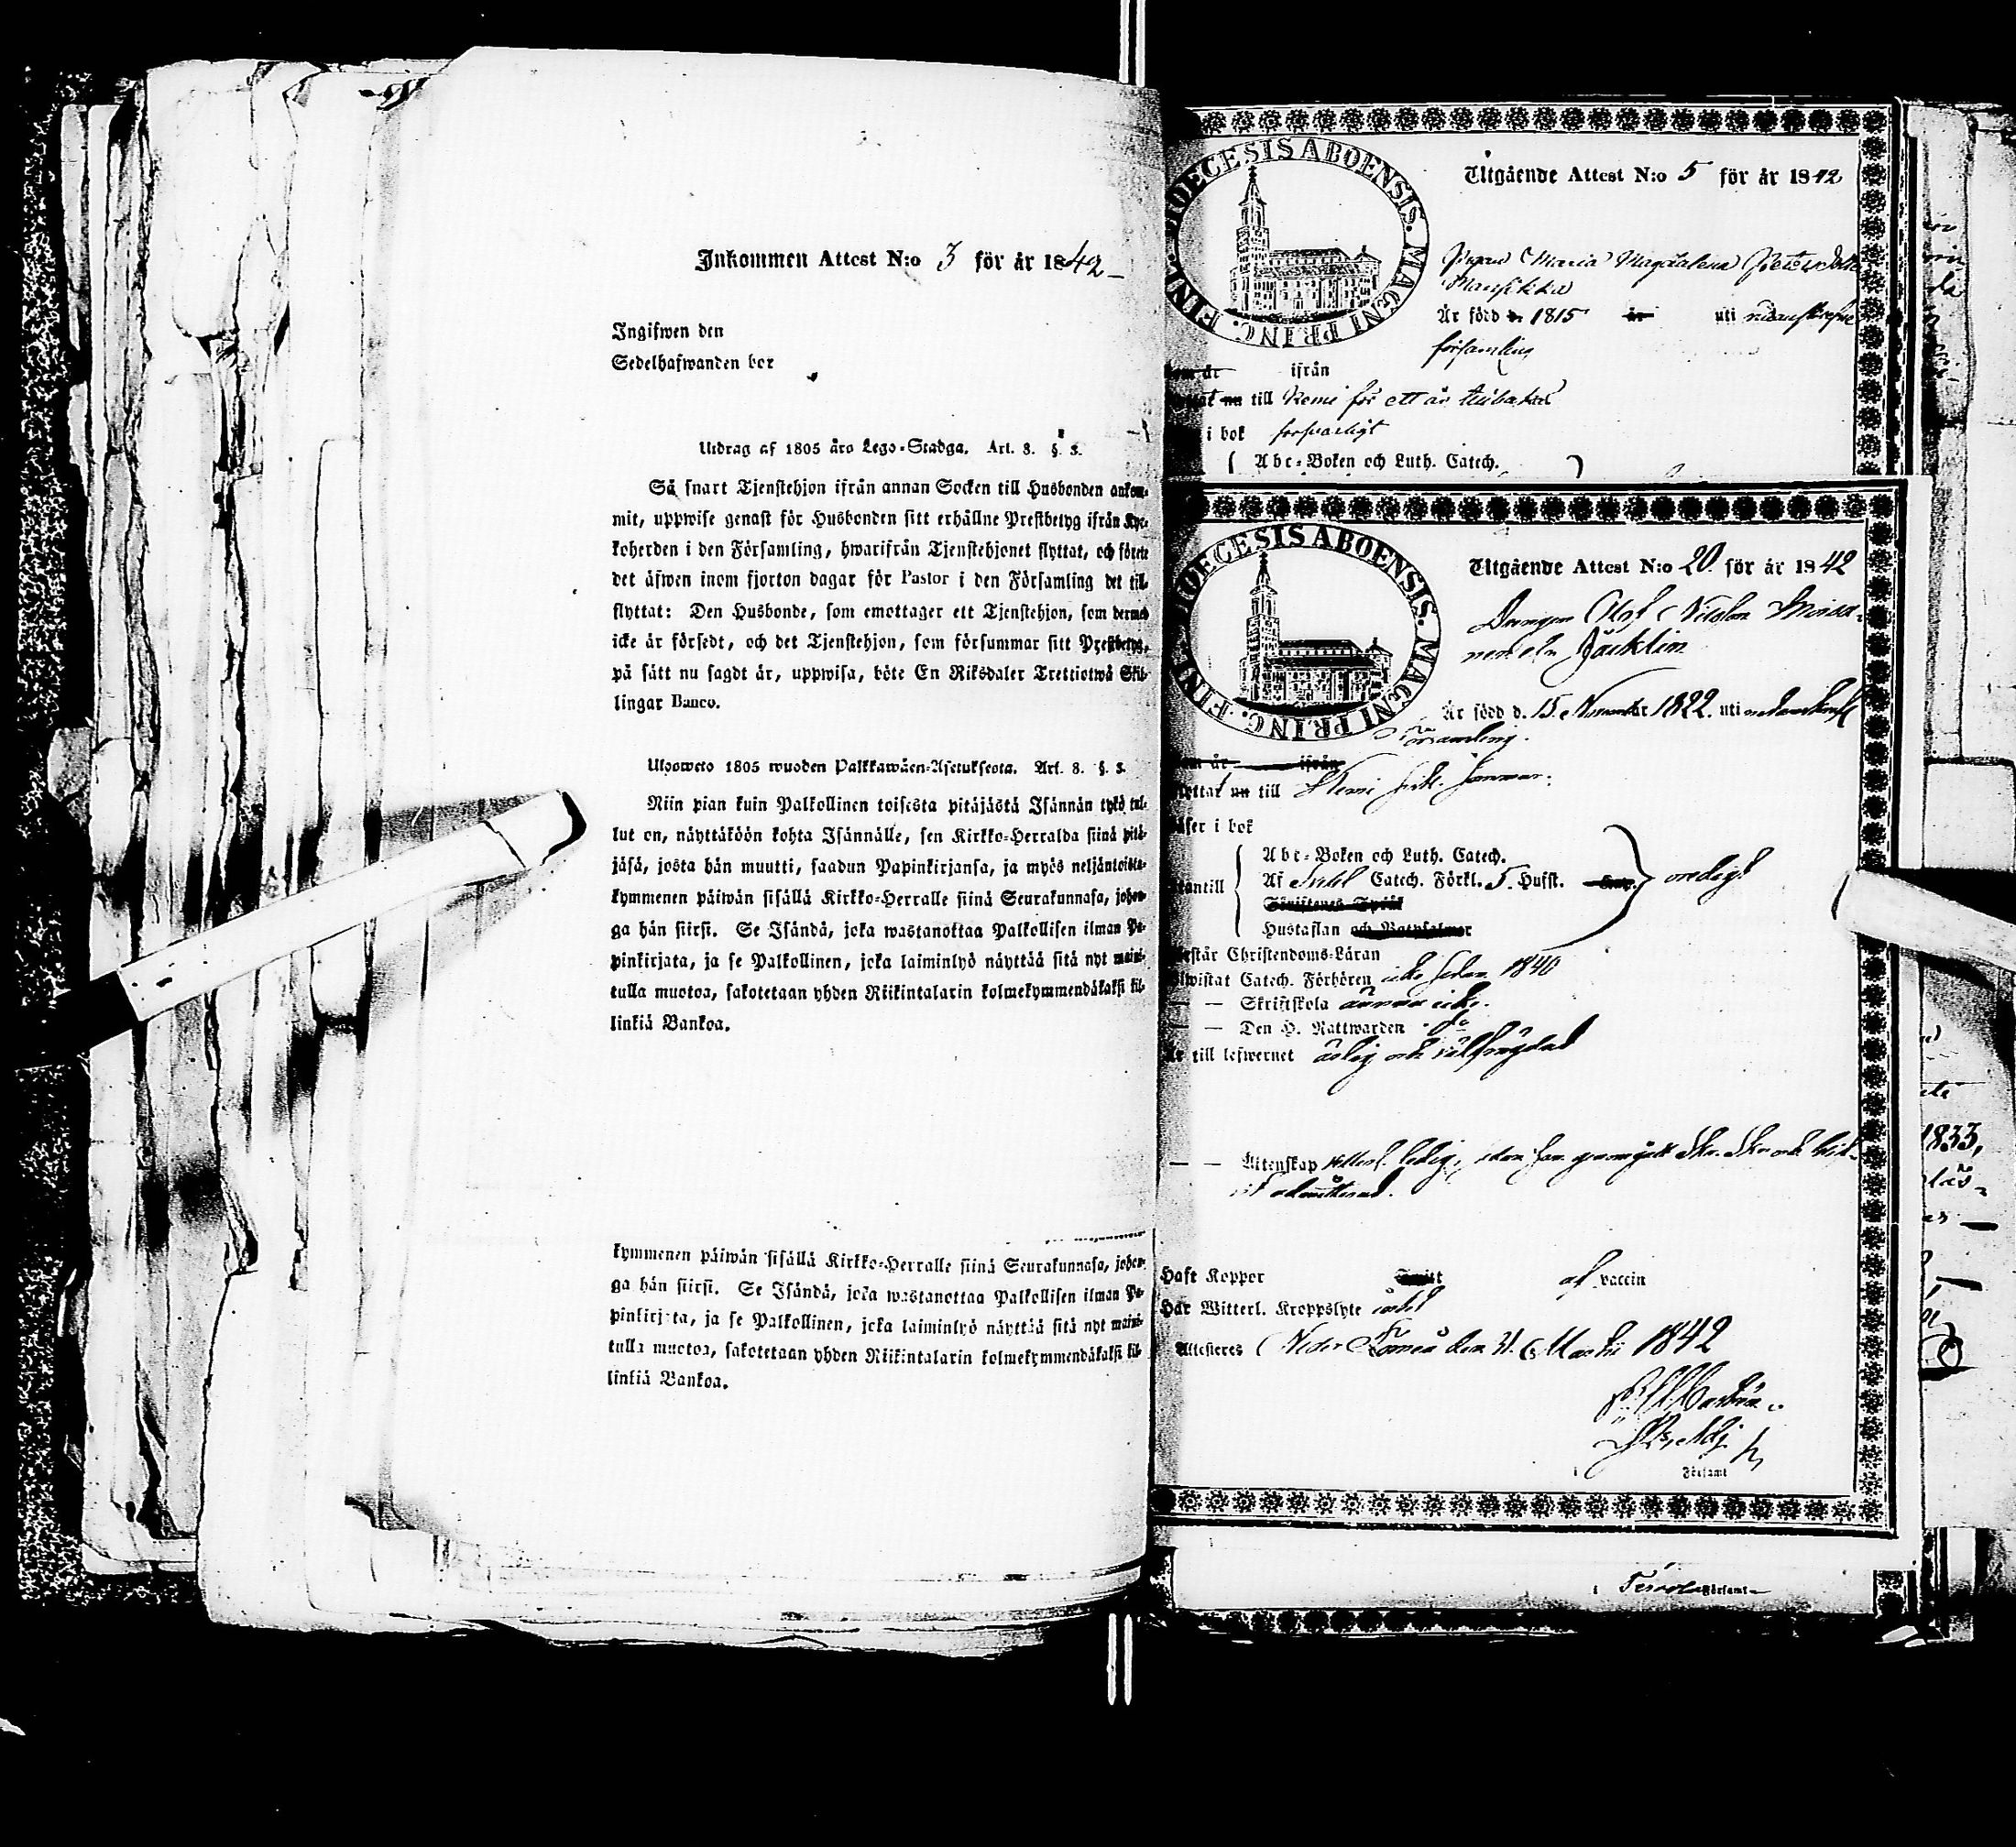 Inkommen Attest N:o 3 för år 1842
Ingifwen den
Sedelhafwanden bor
Utdrag af 1805 års Lego-Stadga. Art. 8. §. 3.
Så snart Tjenstehjon ifrån annan Socken till Husbonden ankom-
mit, uppwise genast för Husbonden sitt erhållne Prestbetyg ifrån Kyr-
koherden i den Församling, hwarifrån Tjenstehjonet flyttat, och förete
det äfwen inom fjorton dagar för Pastor i den Församling det till-
flyttat: Den Husbonde, som emottager ett Tjenstehjon, som dermed
icke är försedt, och det Tjenstehjon, som försummar sitt Prestbetyg,
på sätt nu sagdt är, uppwisa, böte En Riksdaler Trettiotwå Skil-
lingar Banco.
Ulosweto 1805 wuoden Palkkawäen-Asetuksesta. Art. 8. §. 3.
Niin pian kuin Palkollinen toisesta pitäjästä Isännän tykö tul-
lut on, näyttäköön kohta Isännälle, sen Kirkko-Herralda siinä pitä-
jäsä, josta hän muutti, saadun Papinkirjansa, ja myös neljäntoista-
kymmenen päiwän sisällä Kirkko-Herralle siinä Seurakunnasa, johon-
ga hän siirsi. Se Isändä, joka wastanottaa Palkollisen ilman Pa-
pinkirjata, ja se Palkollinen, joka laiminlyö näyttää sitä nyt maini-
tulla muotoa, sakotetaan yhden Riikintalarin kolmekymmendäkaksi kil-
linkiä Bankoa.
kymmenen päiwän sisällä Kirkko-Herralle siinä Seurakunnasa, johon-
ga hän siirsi. Se Isändä, joka wastanottaa Palkollisen ilman Pa-
pinkirjata, ja se Palkollinen, joka laiminlyö näyttää sitä nyt maini-
tulla muotoa, sakotetaan yhden Riikintalarin kolmekymmendäkaksi kil-
linkiä Bankoa.
DIOECESIS ABOENSIS. MAGNI PRINC. FINL.
Utgående Attest N:o 5 för år 1842
Pigan Maria Magdalena Petersdotter
Är född d. 1815 år uti
församling
som är ifrån
till Kemi för ett år tillbaka
i bok försvarligt
Abc-Boken och Luth. Catech.
DIOECESIS ABOENSIS. MAGNI PRINC. FINL.
Utgående Attest N:o 20 för år 1842
Drengen Olof Nilsson
Är född d. 15 November 1822. uti
Församling.
som är ifrån
flyttat nu till Kemi
läser i bok
Abc-Boken och Luth. Catech.
utantill Af Catech. Förkl. 5. Hufst.
Skriftenes Språk
Hustaflan och Botpsalmer
förstår Christendoms-Läran
bewistat Catech. Förhören icke sedan 1840
— — Skriftskola ännu icke.
— — Den H. Nattwarden do
Är till lefwernet ärlig och välfrejdad
— — Äktenskap ledig,
admitterad.
Haft Koppor af vaccin
Har Witterl. Kroppslyte intet
Attesteres Neder Torneå den 31. Martii 1842
Församl
i Tervola Församl.
1833,